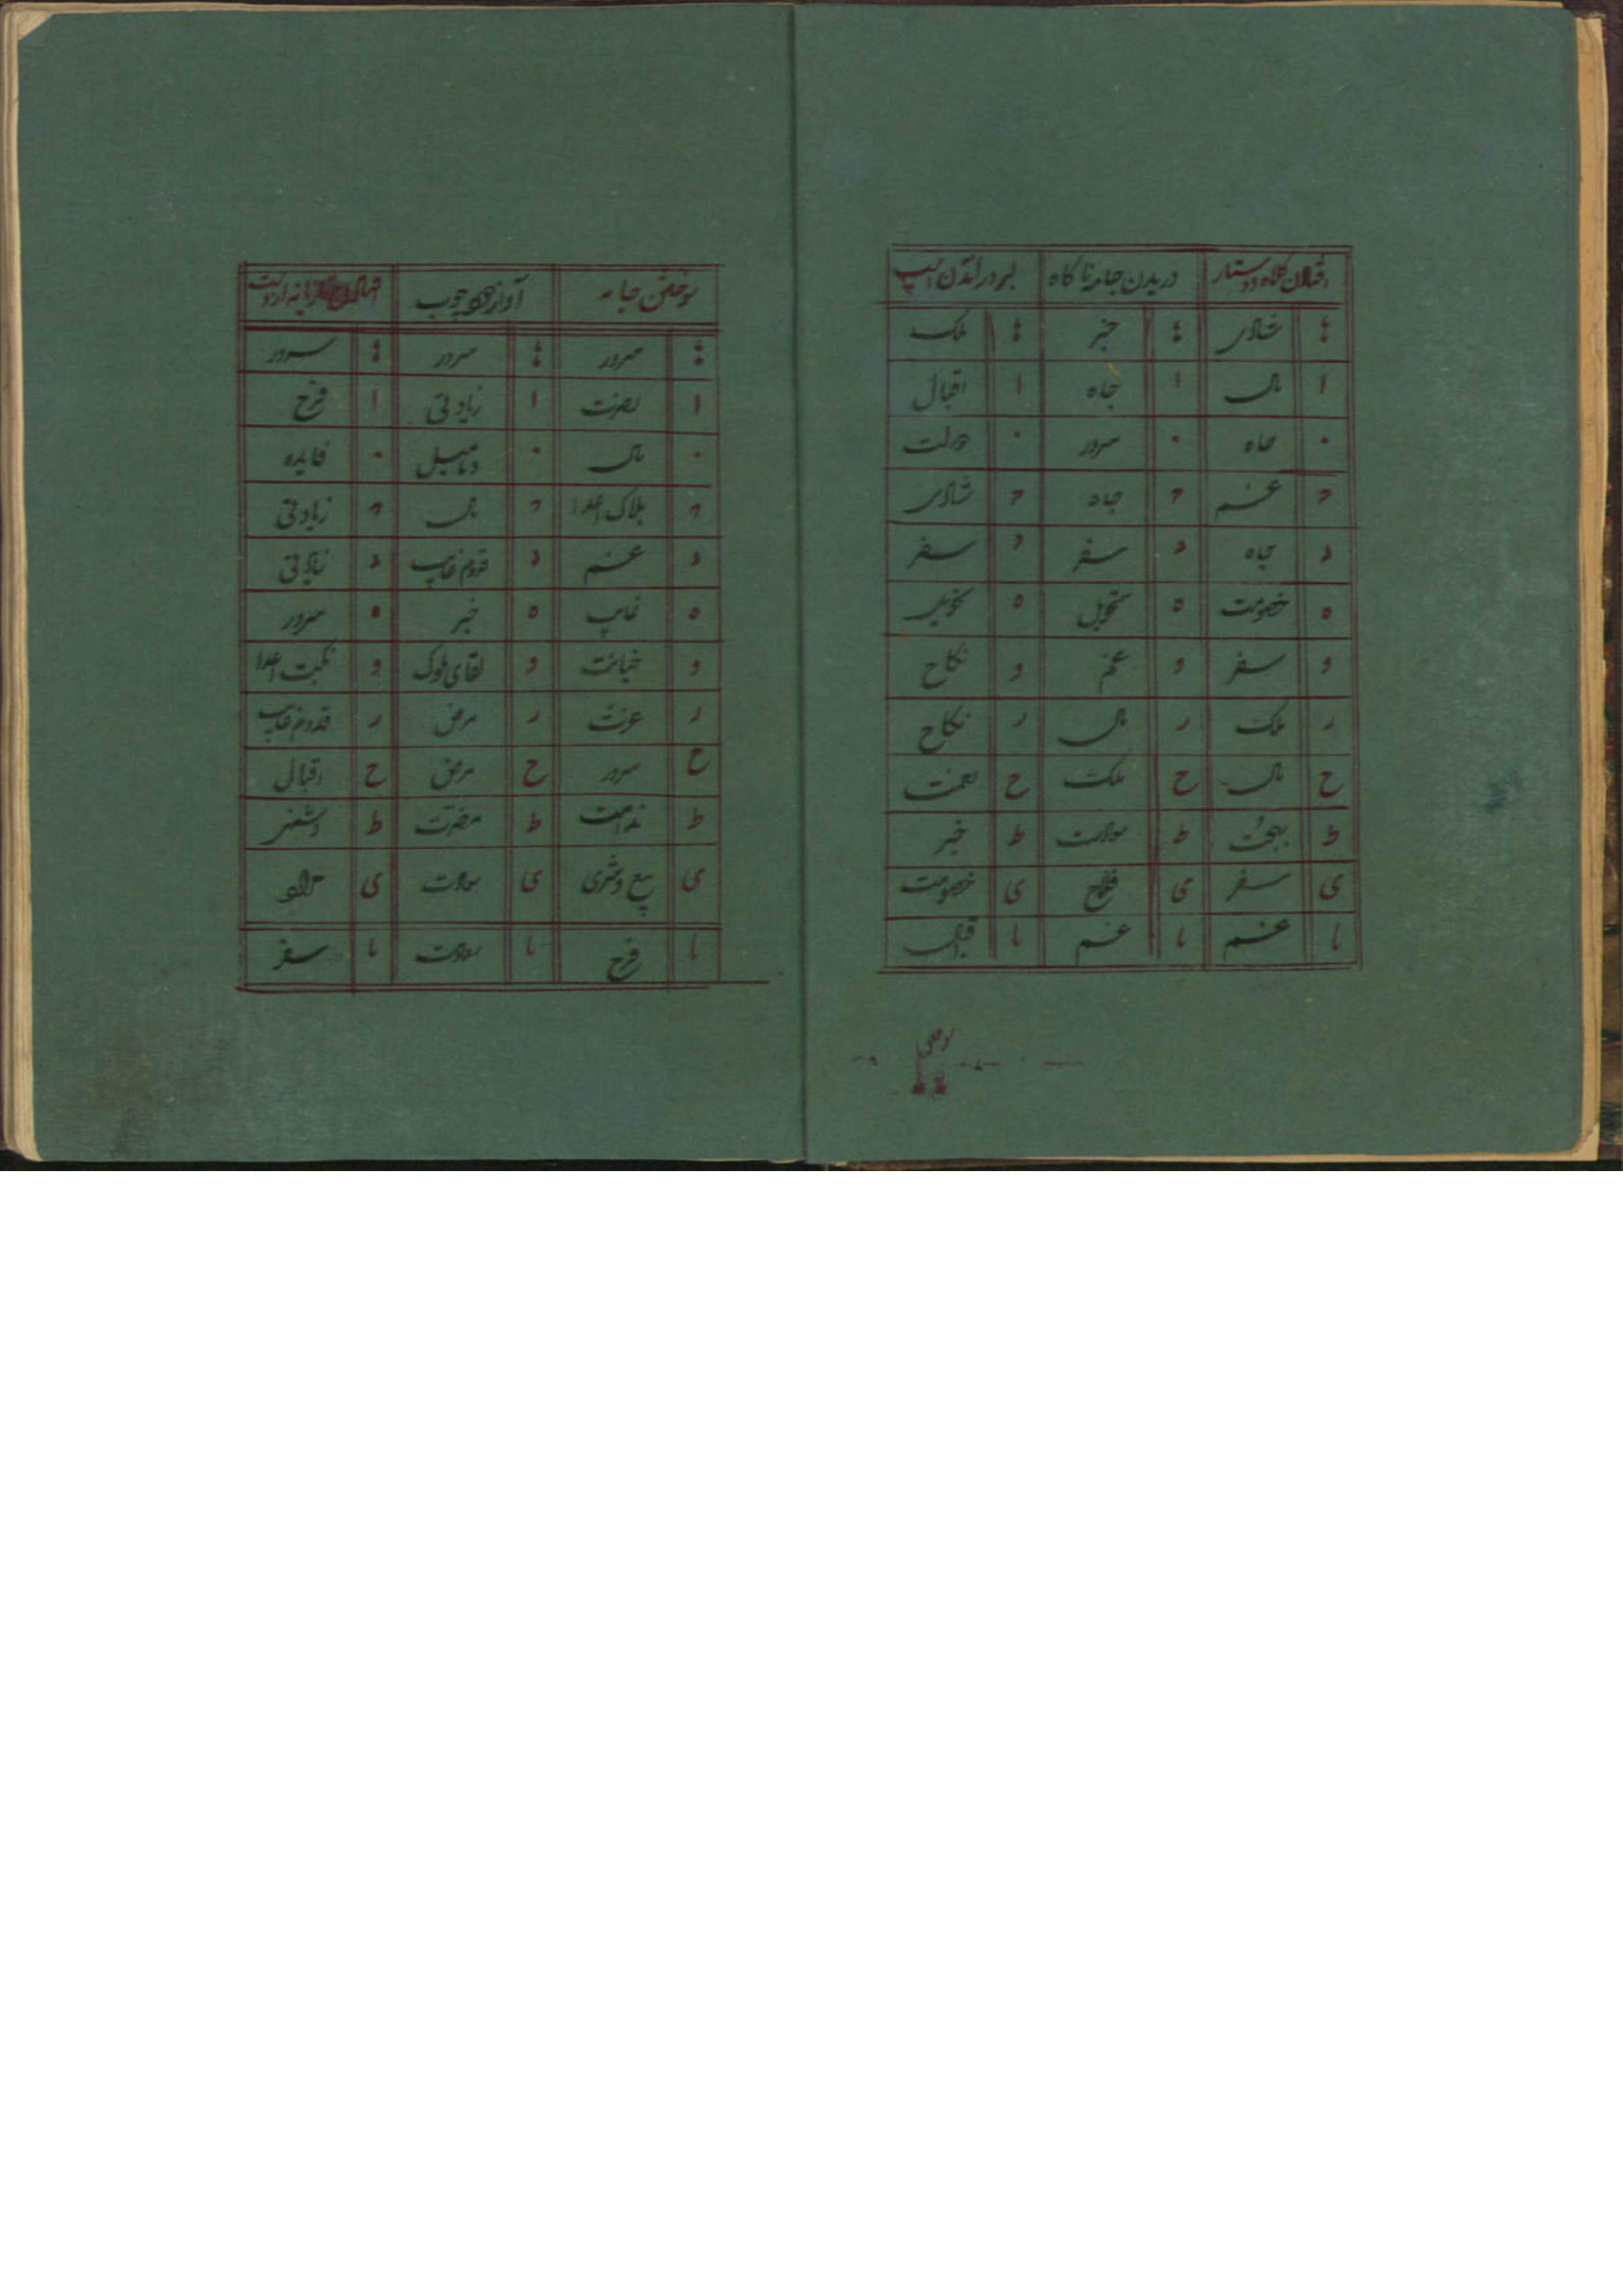 افتادن کلاه و دستار دریدن جامه ناکاه بر در آمدن اسپ
شادی خبر ملک
ا مال ا جاه ا اقبال
۰ جاه ۰ سرور ۰ دولت
غم جاه شادی
د جاه د سفر د سفر
ه خصومت ه تحویل ه تحویل
و سفر و غم و نکاح
ر ملک ر مال ر نکاح
ح مال ح ملک ح نعمت
ط بهجت ط ط خبر
ی سفر ی فلاح ی خصومت
یا غم یا غم یا
سوختن جامه آواز چوب
سرور سرور سرور
ا نصرت ا زیادتی ا فرح
۰ مال ۰ ۰ فایده
هلاک اعدا مال زیادتی
د غم د قدوم غایب د زیادتی
ه غایب ه خبر ه سرور
و خیانت و لقای ملوک و نکبت اعدا
ر عزت ر مرض ر قدوم غایب
ح سرور ح مرض ح اقبال
ط ندامت ط مضرت ط
ی بیع و شری ی ی
یا فرح یا یا سفر
سوختن